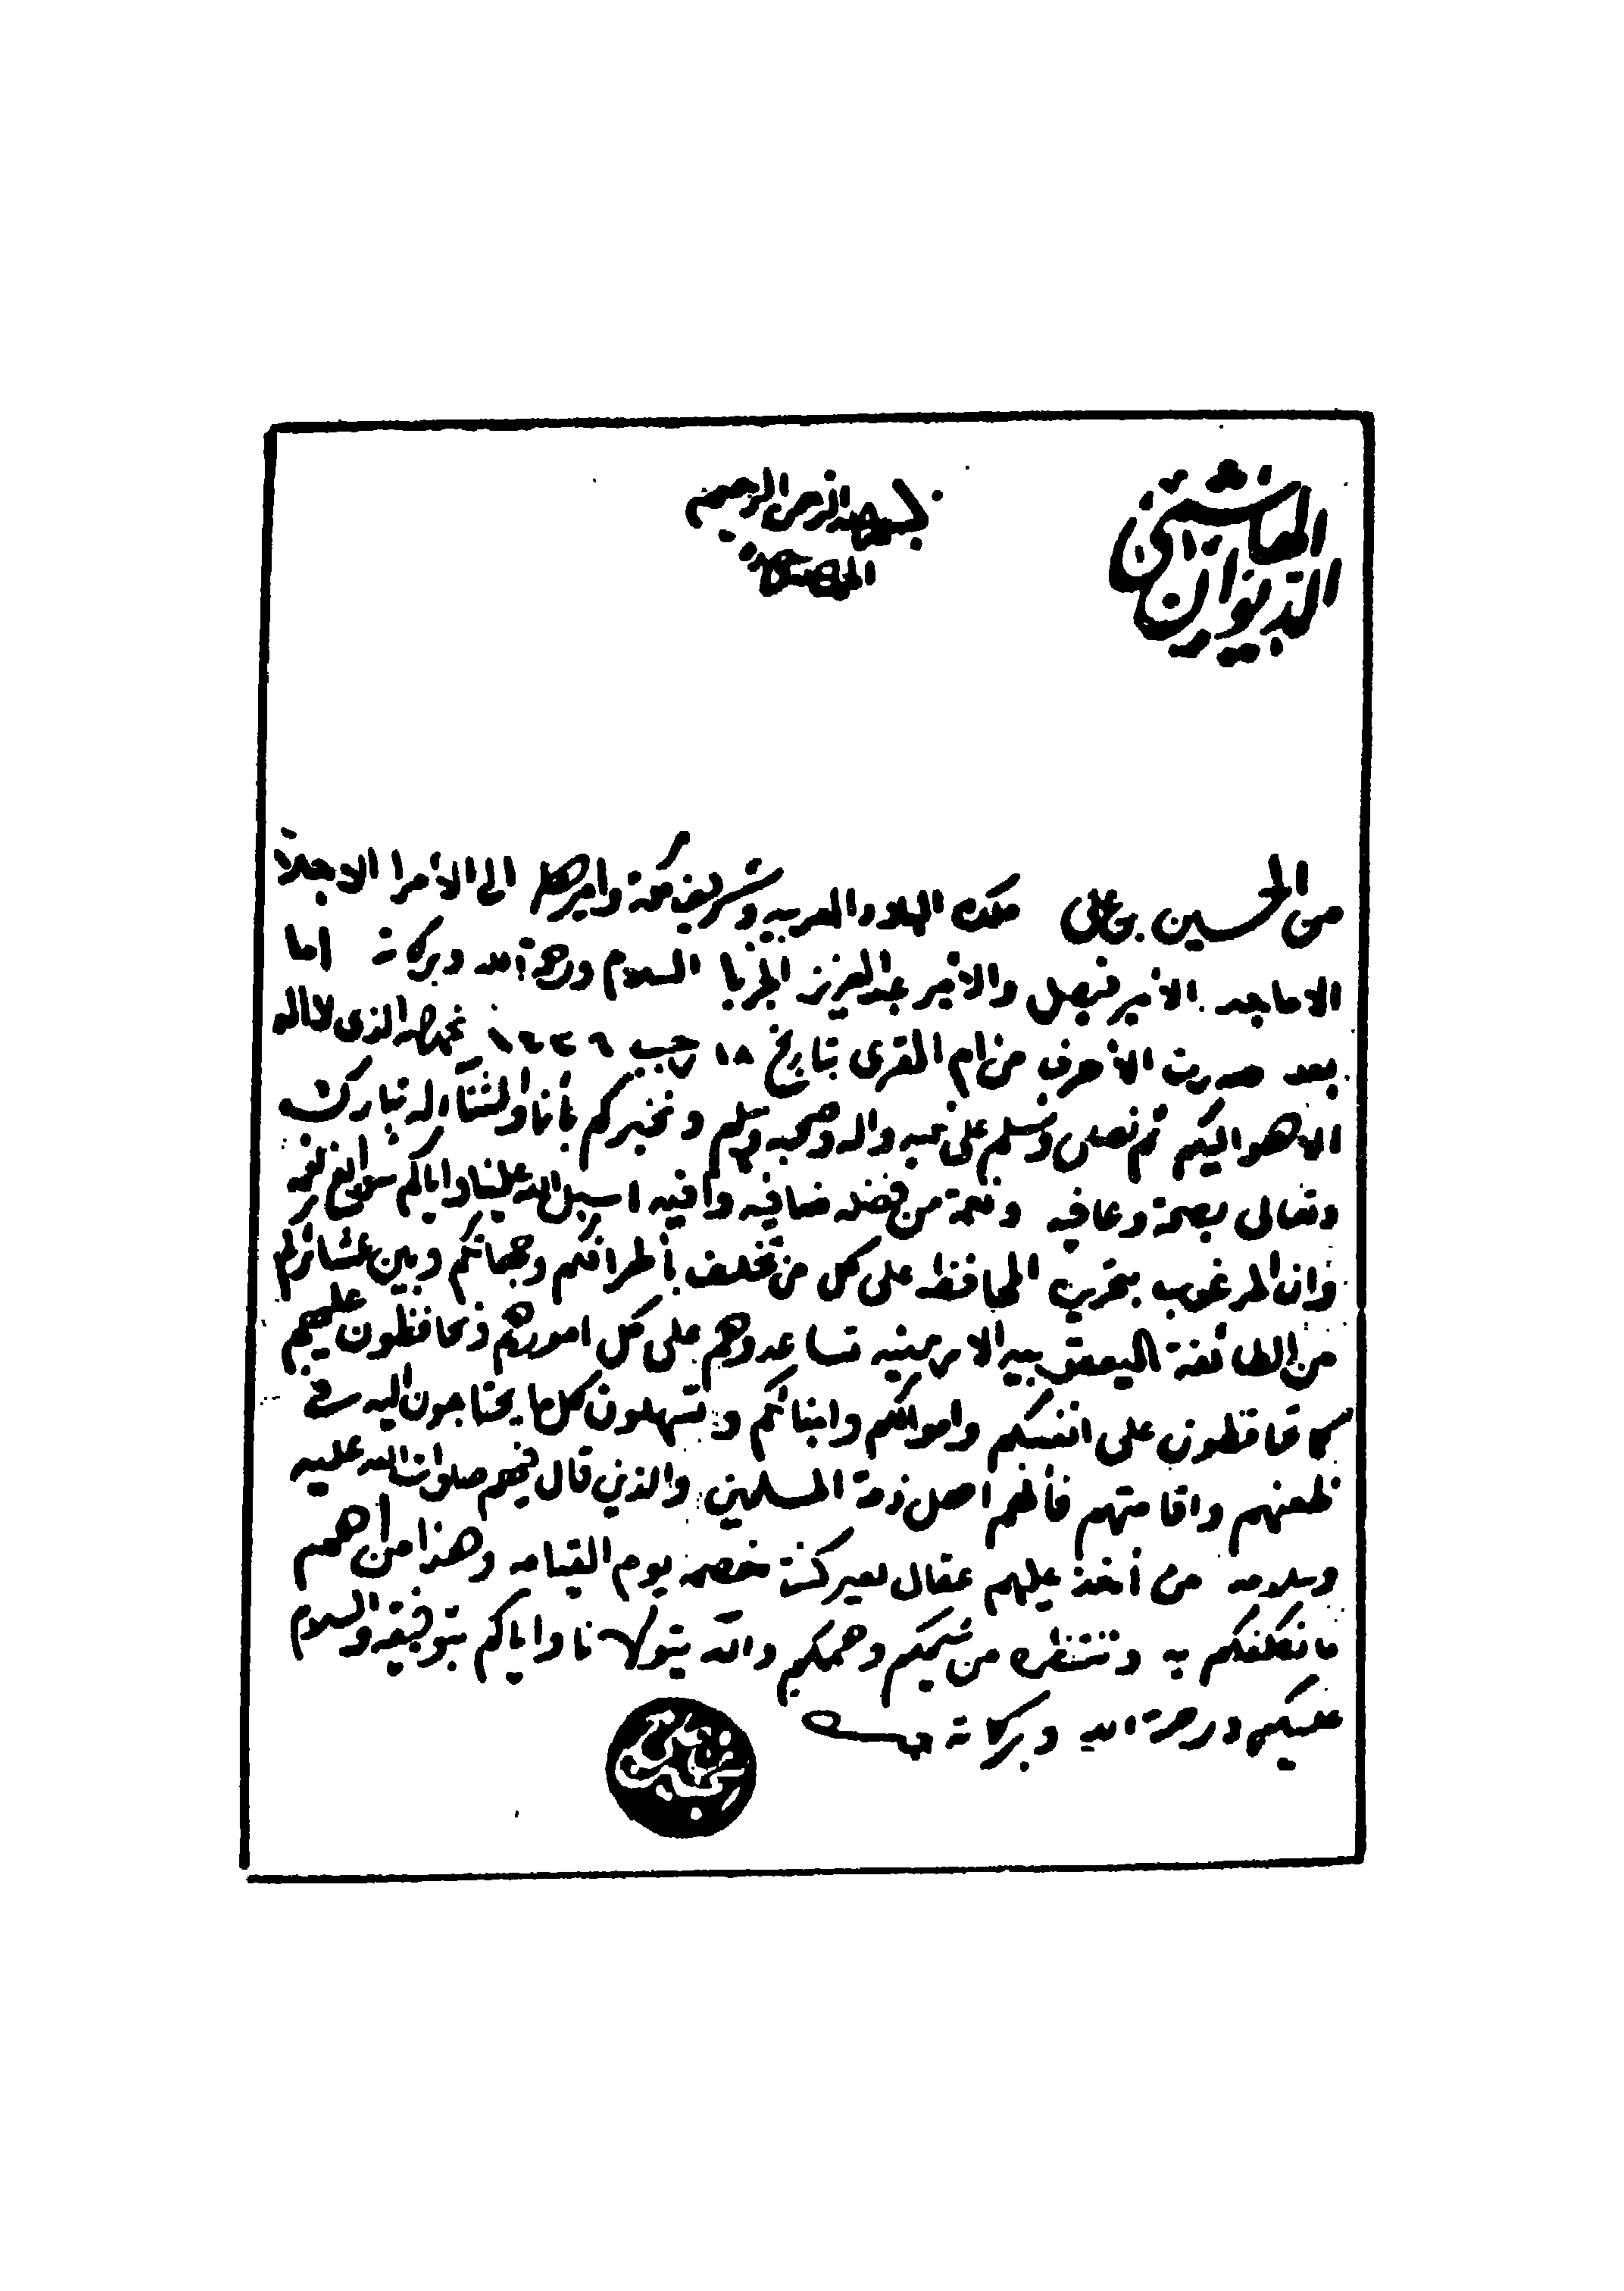 الديوان الهاشمي
بسم الله الرحمن الرحيم
الحمد لله
من الحسين بن علي ملك البلاد العربيه وشريف مكة واميرها الى الأمرا الاجلاء
الاماجد الأمير فيصل والأمير عبدالعزيز الجربا السلام ورحمة الله وبركاته اما
بعد صدرت الأحرف من ام القرى بتاريخ ١٨ رجب ١٣٣٦ نحمد الله الذي لا اله
الا هو اليكم ثم نصلي ونسلم على نبيه واله وصحبه وسلم ونخبركم بأنا ولثنا اله تبارك
وتعالى بصحة وعافيه ونعمة من فضله ضافيه وافيه اسبل الله علينا واياكم سوابغ نعمه
وان المرغوب بتحريره المحافظه على كل من تخلف بأطرافكم وجهاتكم وبين عشائركم
من الطائفة اليعقوبيه الارمنيه تساعدوهم على كل امورهم وتحافظون عليهم
كما تحافظون على انفسكم واموالكم وابنائكم وتسهلون كل ما يحتاجون اليه في
ظعنهم واقامتهم فأنهم اهل ذمة المسلمين والذين قال فيهم صلوات الله عليه
وسلامه من أخذ عليهم عقال بعير كنت خصمه يوم القيامه وهذا من اهم
ما نكلفكم به وننتظره من شيمكم وهممكم والله يتولانا واياكم بتوفيقه والسلام
عليكم ورحمة الله وبركاته